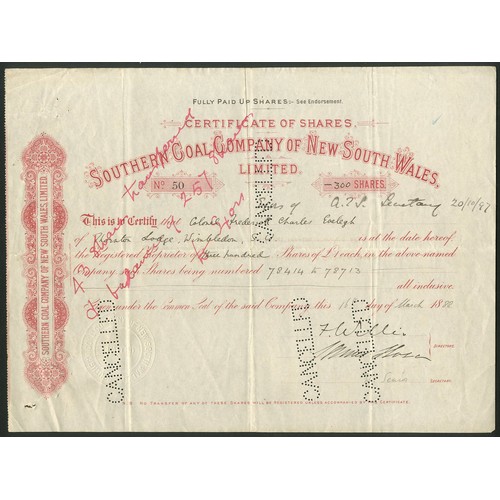 FULLY PAID UP SHARES:- See Endorsement.
CERTIFICATE OF SHARES
SOUTHERN COAL COMPANY OF NEW SOUTH WALES,
LIMITED.
No 50
300 SHARES.
Secretary 20/10/87
This is to Certify that Colonel Frederick Charles
of Lodge, Wimbledon, is at the date hereof
the Registered Proprietor of three hundred Shares of £1 each, in the above-named
Company, such Shares being numbered 78414 to 78713
all inclusive.
Given under the Common Seal of the said Company this 16 day of March 188
DIRECTORS
SECRETARY.
N.B. NO TRANSFER OF ANY OF THESE SHARES WILL BE REGISTERED UNLESS ACCOMPANIED BY THIS CERTIFICATE.
SOUTHERN COAL COMPANY OF NEW SOUTH WALES, LIMITED.
43 shares transferred
balance of 257 shares
CANCELLED
CANCELLED
CANCELLED
CANCELLED